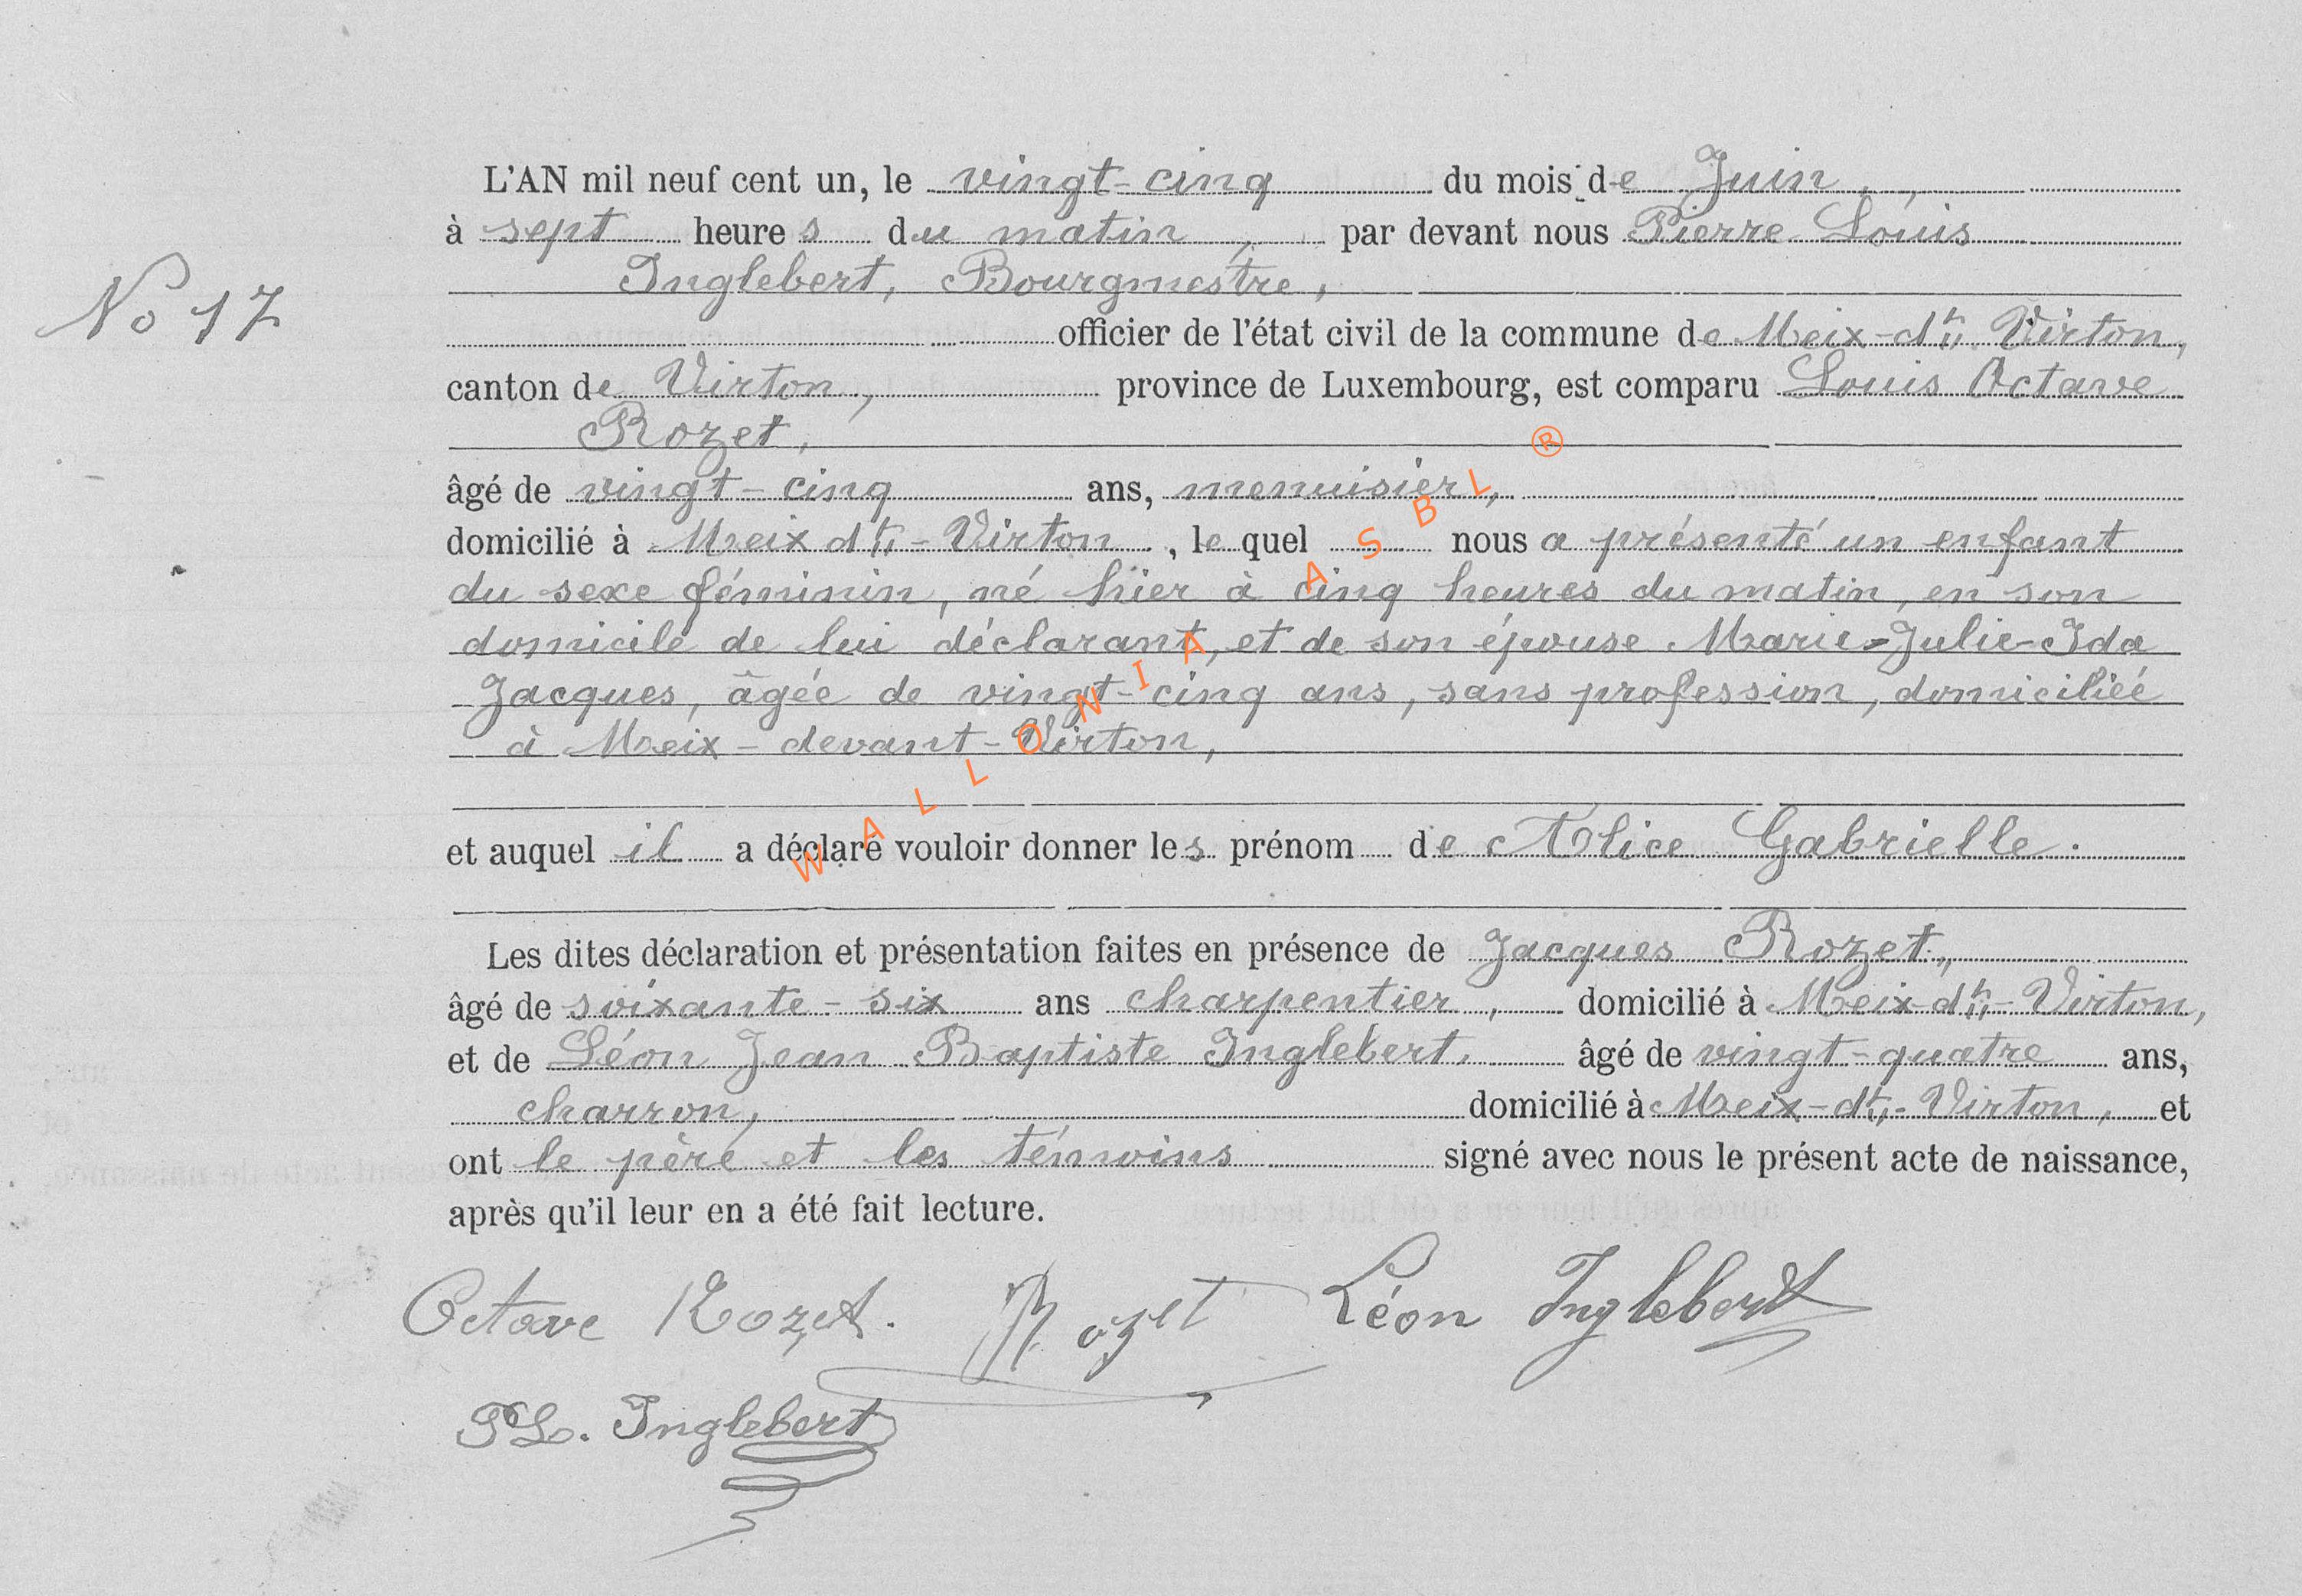 L'AN mil neuf cent un, le vingt-cinq du mois de Juin,
à sept heures du matin, par devant nous Pierre Louis
Inglebert, Bourgmestre,
No 17
officier de l'état civil de la commune de Meix-dt-Virton,
canton de Virton, province de Luxembourg, est comparu Louis Octave
Rozet,
âgé de vingt-cinq ans, menuisier,
domicilié à Meix dt-Virton, le quel nous a présenté un enfant
du sexe féminin, né hier à cinq heures du matin, en son
domicile de lui déclarant, et de son épouse Marie-Julie-Ida
Jacques, âgée de vingt-cinq ans, sans profession, domiciliée
à Meix-devant-Virton,
et auquel il a déclaré vouloir donner les prénom de Alice Gabrielle.
Les dites déclaration et présentation faites en présence de Jacques Rozet,
âgé de soixante-six ans charpentier, domicilié à Meix-dt-Virton,
et de Léon Jean Baptiste Inglebert, âgé de vingt-quatre ans,
charron, domicilié à Meix-dt-Virton, et
ont le père et les témoins signé avec nous le présent acte de naissance,
après qu'il leur en a été fait lecture.
Octave Rozet. Rozet Léon Inglebert
PL. Inglebert
WALLONIA ASBL ®